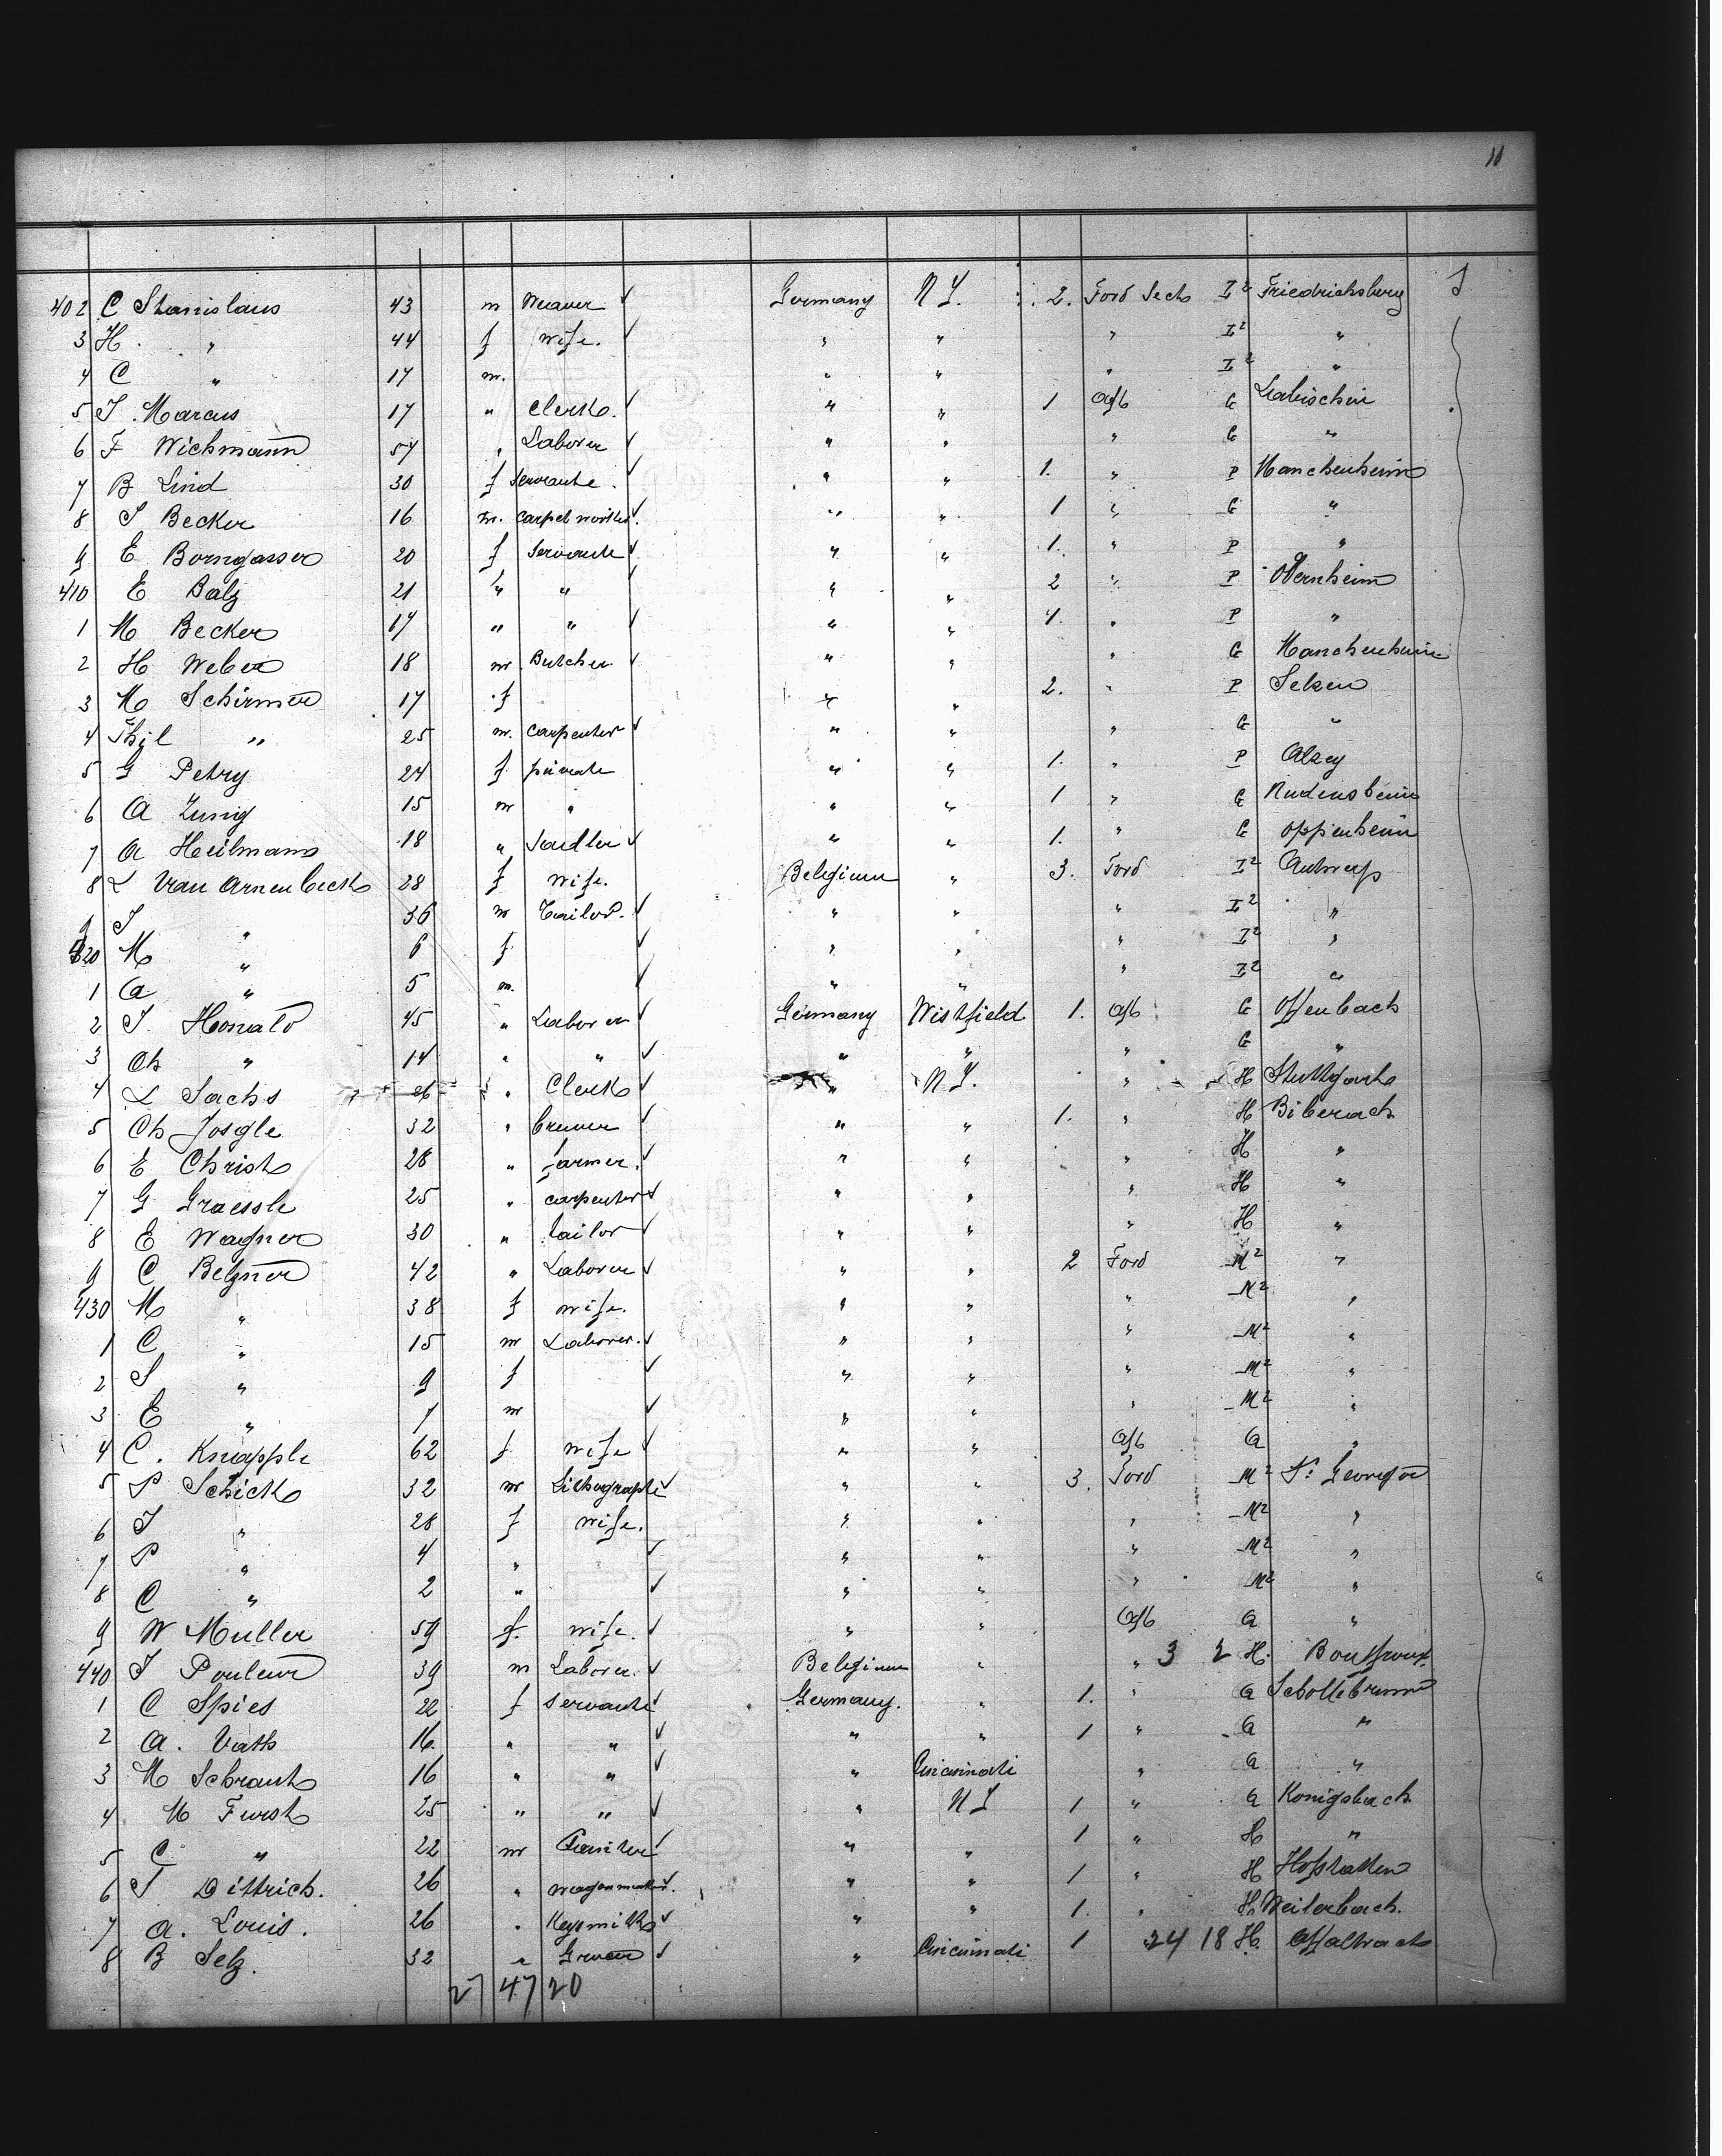 11
402 C Stanislaus 43 m Weaver ✓ Germany N Y. 2. Ford Sech I² Friedrichsberg
3 H. " 44 f wife. ✓ " " " I² "
4 C " 17 m. " " " I² "
5 J. Marcus 17 " Clerk. ✓ " " 1 Aft G Labischin
6 F Wichmann 57 " Laborer ✓ " " " G "
7 B Lind 30 f Servante. ✓ " " 1. " P Manchenheim
8 J Becker 16 m. Carpet worker ✓ " " 1 " G "
9 E Borngasser 20 f Servante ✓ " " 1. " P "
410 E Balz 21 " " ✓ " " 2 " P Obernheim
1 M Becker 17 " " ✓ " " 1. " P "
2 H Weber 18 m Butcher ✓ " " " G Manchenheim
3 M Schirmer 17 f " " 2. " P Selzen
4 Phil " 25 m. Carpenter ✓ " " " G "
5 G Petry 24 f. private " " 1. " P Alzey
6 A Zung 15 m " " " 1 " G
7 A Heilmann 18 " Sadler ✓ " " 1. " G Oppenheim
8 L Van Arnenbeck 28 f wife. Belgium " 3. Ford I² Antwerp
9 J " 36 m Tailor. ✓ " " " I² "
420 M " 6 f ✓ " " " I² "
1 A " 5 m. ✓ " " " I² "
2 J Honato 45 " Laborer ✓ Germany Westfield 1. Aft G Offenbach
3 Ch " 14 " " ✓ " " " G "
4 L Sachs 26 " Clerk ✓ " N Y. " H Stuttgart
5 Ch Josgle 32 " Brewer ✓ " " 1. " H Biberach
6 E Christ 28 " farmer. ✓ " " " H "
7 G Graessle 25 " carpenter ✓ " " " H "
8 E Wagner 30 " tailor ✓ " " " H "
9 C Belzner 42 " Laborer ✓ " " 2 Ford M² "
430 M " 38 f wife. " " " M² "
1 C " 15 m Laborer. ✓ " " " M² "
2 S " 9 f ✓ " " " M² "
3 E " 7 m ✓ " " " M² "
4 C. Knapple 62 f wife ✓ " " Aft A "
5 P Schick 32 m Lithograph ✓ " " 3. Ford M² St. Georgen
6 J " 28 f wife. " " " M² "
7 P " 4 " ✓ " " " M² "
8 C " 2 " ✓ " " " M² "
9 W Muller 59 f. wife. ✓ " " Aft A "
440 J Pouleur 39 m Laborer. ✓ Belgium " " 3 2 H.
1 C Spies 22 f servante ✓ Germany. " 1. " A Schollebrunn
2 A. Vath 16. " " ✓ " " 1 " A "
3 M Schraut 16 " " ✓ " Cincinnati " A "
4 M Furst 25 " " ✓ " N Y 1 " A Konigsbach
5 C " 22 m ✓ " " 1 " H "
6 J Dittrich. 26 " Wagonmaker. " " 1 " H Hofstatten
7 A. Louis. 26 " Keysmith ✓ " " 1. " H Weilerbach.
8 B Selz. 32 " ✓ " Cincinnati 1 24 18 H.
27 47 20